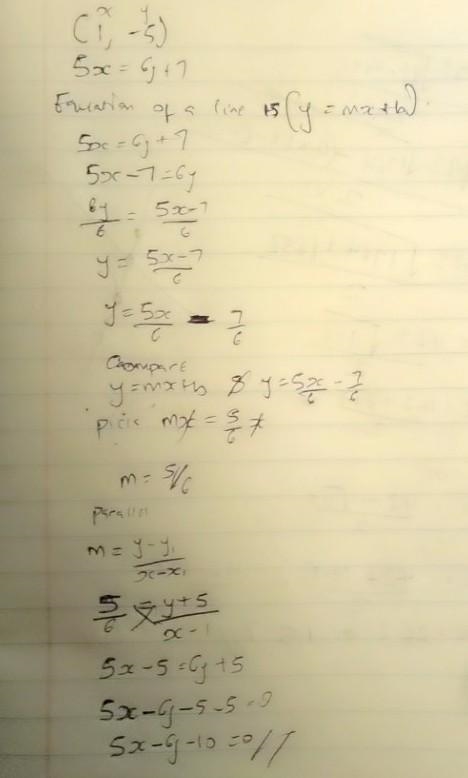 x y
(1, -5)
5x = 6y + 7
Equation of a line is (y = mx + b)
5x = 6y + 7
5x - 7 = 6y
6y/6 = 5x-7/6
y = 5x-7/6
y = 5x/6 - 7/6
Compare
y = mx+b & y = 5x/6 - 7/6
pick mx = 5/6 x
m = 5/6
parallel
m = y-y₁/x-x₁
5/6 = y+5/x-1
5x - 5 = 6y + 5
5x - 6y - 5 - 5 = 0
5x - 6y - 10 = 0//